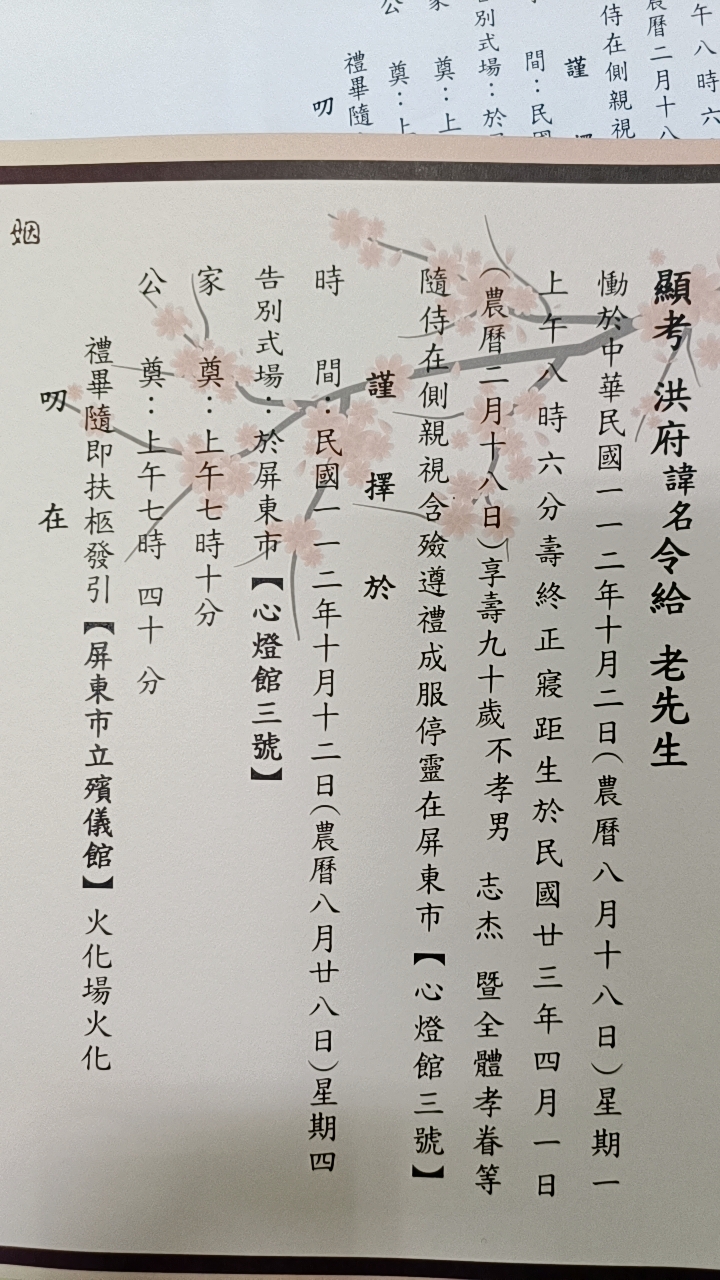 午八時六
農曆二月十八
侍在側親視
謹
間：民國
告別式場：於
家 奠：上
公 奠：上
禮畢隨
叨
顯考 洪府諱名令給 老先生
慟於中華民國一一二年十月二日（農曆八月十八日）星期一
上午八時六分壽終正寢距生於民國廿三年四月一日
（農曆二月十八日）享壽九十歲不孝男 志杰 暨全體孝眷等
隨侍在側親視含殮遵禮成服停靈在屏東市【心燈館三號】
謹擇於
時 間：民國一一二年十月十二日（農曆八月廿八日）星期四
告別式場：於屏東市【心燈館三號】
家 奠：上午七時十分
公 奠：上午七時 四十 分
禮畢隨即扶柩發引【屏東市立殯儀館】火化場火化
叨 在
姻